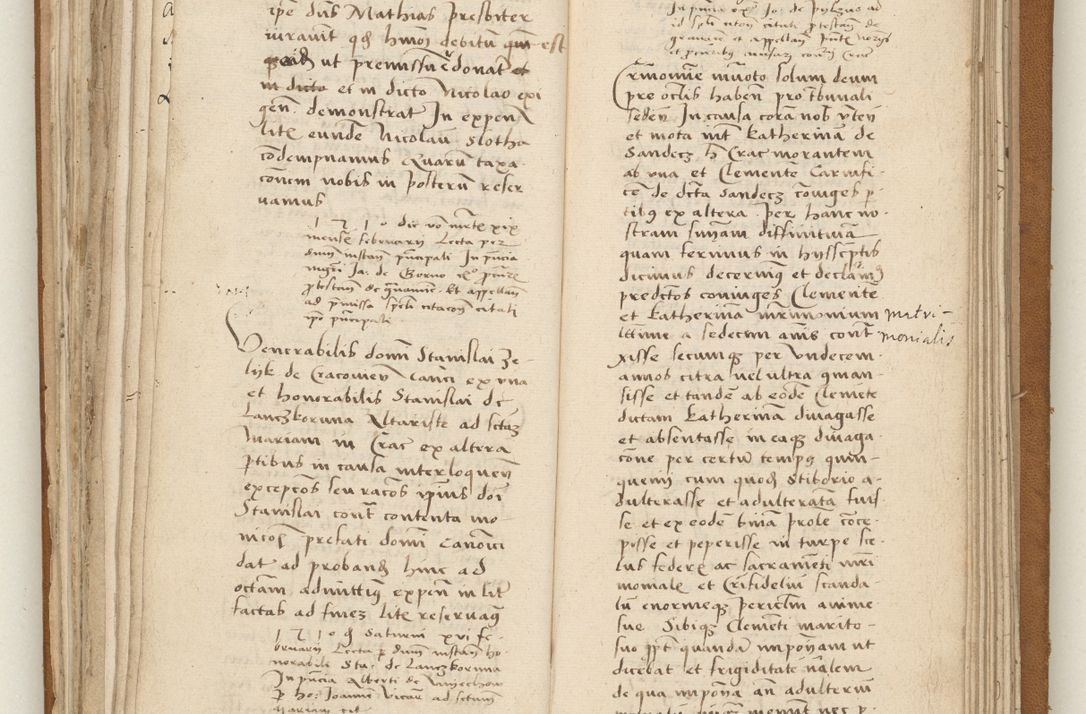 ip̄e dn̄s Mathias presbiter
iuravit qd̄ hm̄oi debitū
ut premissū ē donat et
in dicto et in dicto Nicolao exi
gen̄ demonstrat In expen̄
litē eundē Nicolaū Slotha
cōdempnamus Quarū taxa
cōnem nobis in posterū reser
vamus
1510 die
mensē februarii Lecta per
dn̄um instan̄ prīncipali In pn̄cia
mgr̄i Ja: de Gorno
protestan̄ de gravamē Et appellan̄
ad p̄missa citati
ip̄o prīncipali
Venerabilis domī Stanislai Ze-
lyk de Cracovien̄ Canc̄i ex una
et honorabilis Stanislai de
Lanczkoruna Altariste ad sctā
Mariam in Crac̄ ex altera
p̄tibus in causa interloquen̄
excepcōs seu racōs ip̄ius dn̄i
Stanislai cont̄ contenta mo-
nicōs prefati domī Canōici
dat ad proband̄ hinc ad
octam̄ admittim̄ expen̄ in lit̄
factas ad finē litē reservan̄
1510 d̄ Saturni xvi fe-
bruarii Lecta p̄ dn̄um instan̄ ho-
norabili Sta: de Lanczkoruna
In pn̄cia Alberti de
p̄ ho: Joannē Vicar̄ ad sctam
Mariam cit̄
In pn̄cia Jo: de
citati p̄testan̄ de
gravamē et appellan̄
Crimonie in voto solum deum
pre oculis haben̄ pro tribunali
seden̄ In causa corā nob̄
et mota int̄ Katherinā de
Sandecz h̄ Crac̄ morantem
ab una et Clementē Carnifi-
cē de dicta Sandecz cōiuges p̄
tibus ex altera Per hanc no-
stram sn̄iam diffinitivā
quam ferimus in hys scriptis
dicimus decernimus et declaramus
predictos coniuges Clementē
et Katherinā matrimonium matri-
ltīme a sedecim annis cont̄ monialis
xisse secumque per undecem
annos citra vel ultra man-
sisse et tandē ab eodē Clemētē
dictam Katherinā divagasse
et absentasse in eaque divaga-
cōne per certū tempus quin-
quenii cum quodā Stiborio a-
dulterasse et adulteratā fuis-
se et ex eodē prole cōce-
pisse et peperisse in turpe sce-
lus federe ac sacramēti m̄ri
monialē et Cristifideliū scanda-
lū enormeque periculum anime
sue Sibique Clemēti marito-
suo propter quandā impon̄am ut
dicebat et frigiditatē n̄alem
de qua impon̄a an̄ adulteriū